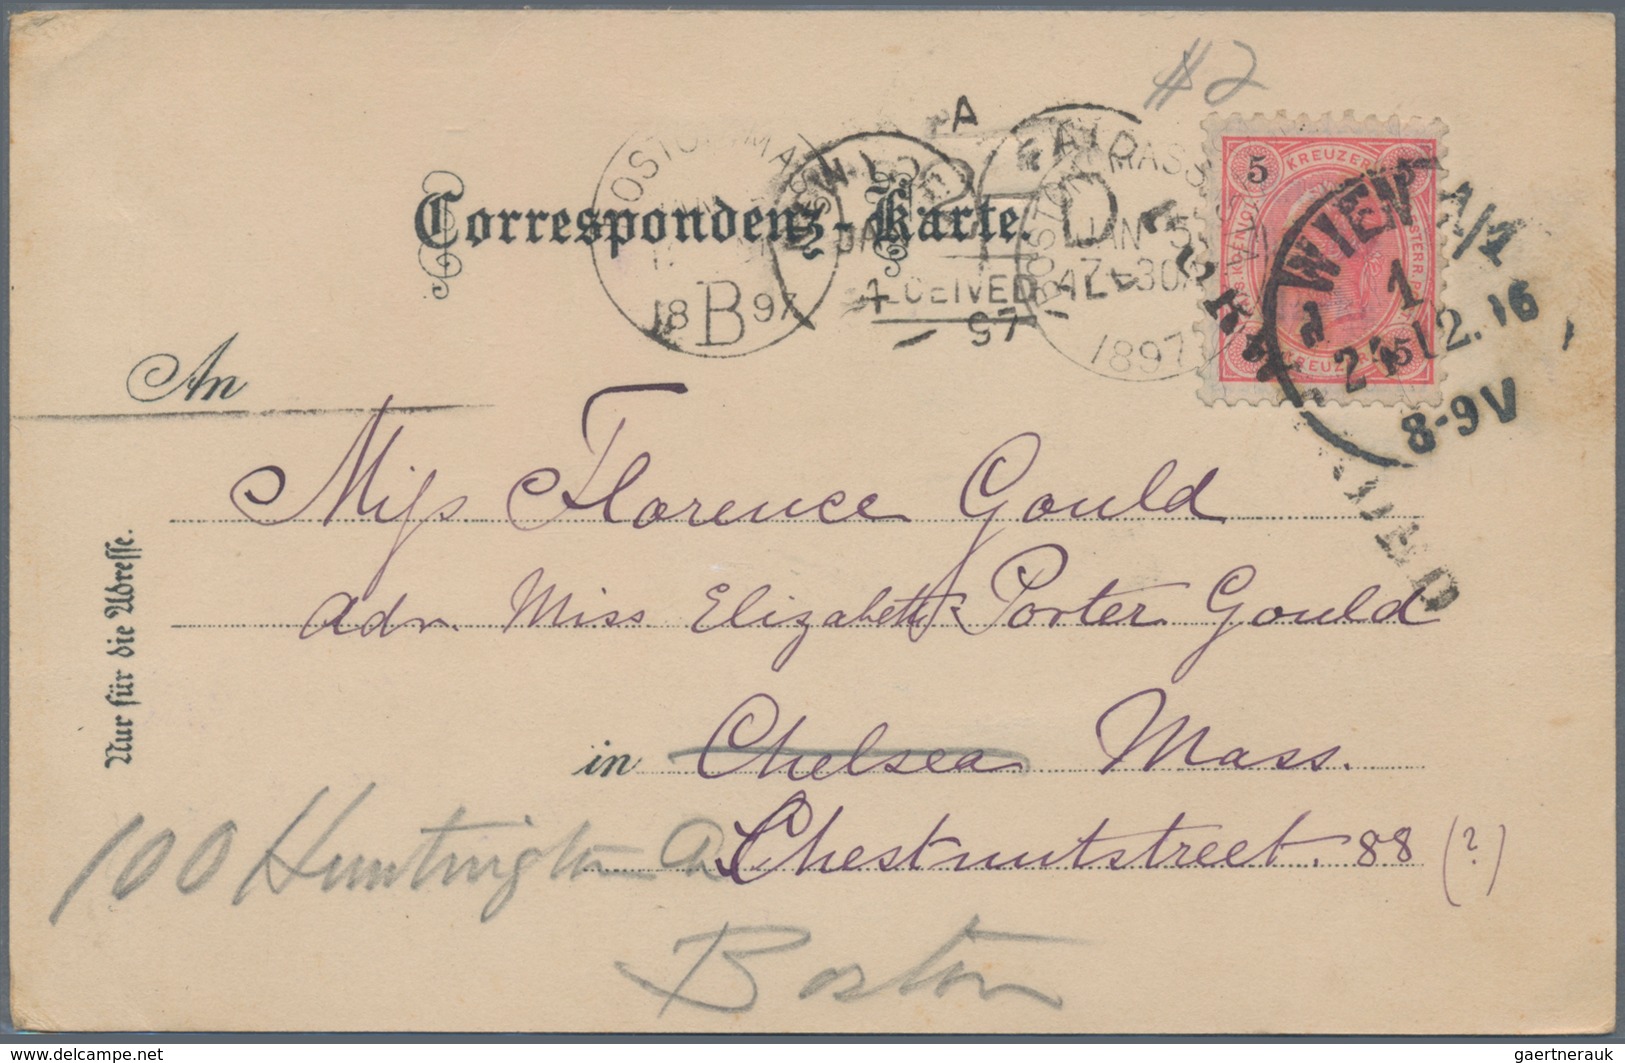 #2
Correspondenz-Karte.
BOSTON MASS
JAN 5
4Z-30A
1897
18 B 97
PAID
RECEIVED
97
A
5 KREUZER 5
5 KREUZER
WIEN 1/1
1
24 12. 96
8-9V
An
Miss Florence Gould
adr. Miss Elizabeth Porter Gould
in Chelsea Mass.
Chestnutstreet. 88 (?)
100 Huntington Av
Boston
Nur für die Adresse.
www.delcampe.net
gaertnerauk